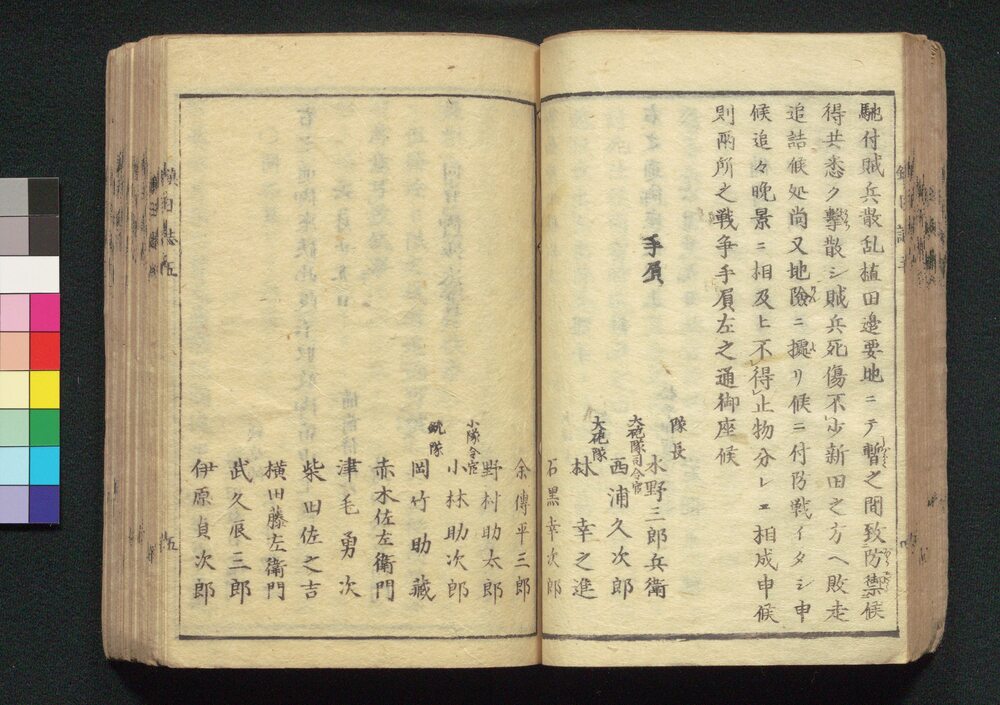 馳付賊兵散乱植田邉要地ニテ暫之間致防禦候
得共悉ク撃散シ賊兵死傷不少新田之方ヘ敗走
追詰候処尚又地險ニ據リ候ニ付防戦イタシ申
候追々晩景ニ相及ヒ不得止物分レニ相成申候
則両所之戦争手屓左之通御座候
手屓
隊長
水野三郎兵衛
大砲隊司令官
西浦久次郎
大砲隊
林幸之進
石黒幸次郎
余傳平三郎
野村助太郎
小隊令官
小林助次郎
銃隊
岡竹助藏
赤木佐左衛門
津毛勇次
柴田佐之吉
横田藤左衛門
武久辰三郎
伊原貞次郎
鎮日誌五
五